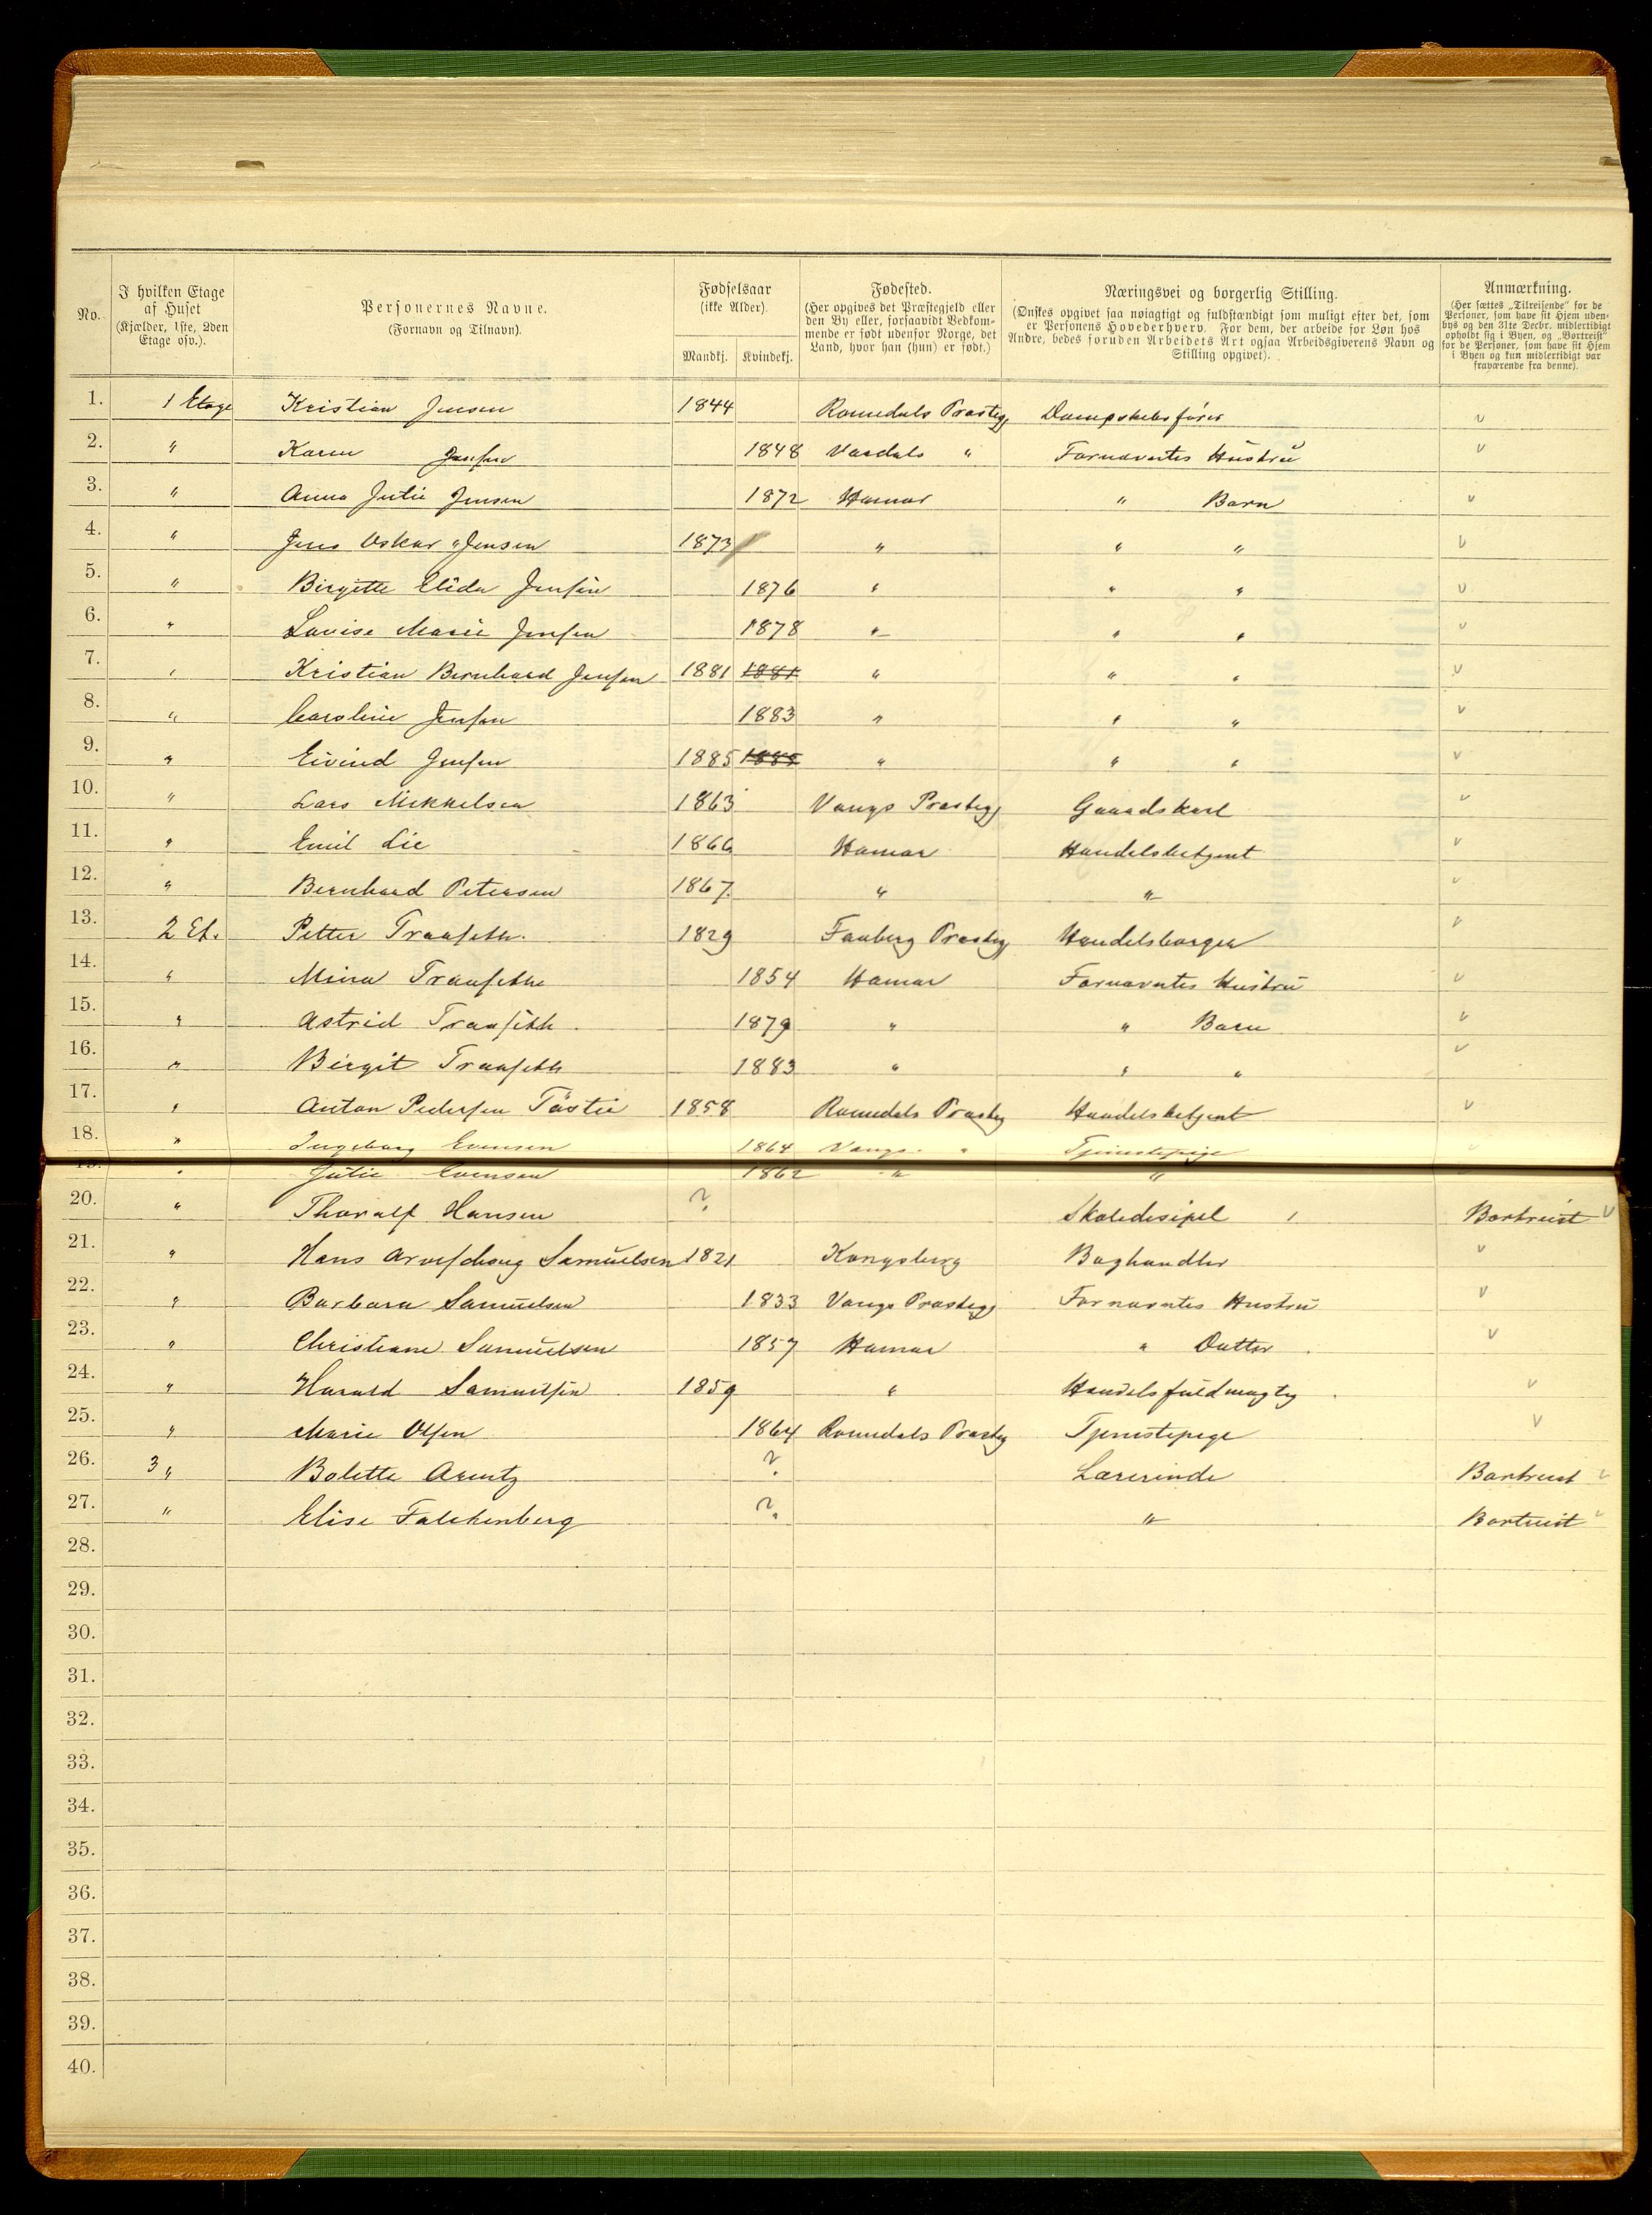 No. | I hvilken Etage af Huset (Kjælder, 1ste, 2den Etage osv.). | Personernes Navne. (Fornavn og Tilnavn). | Fødselsaar (ikke Alder). Mandkj. | Kvindekj. | Fødested. (Her opgives det Præstegjeld eller den By eller, forsaavidt Vedkommende er født udenfor Norge, det Land, hvor han (hun) er født.) | Næringsvei og borgerlig Stilling. (Ønskes opgivet saa nøiagtigt og fuldstændigt som muligt efter det, som er Personens Hovederhverv. For dem, der arbeide for Løn hos Andre, bedes foruden Arbeidets Art ogsaa Arbeidsgiverens Navn og Stilling opgivet). | Anmærkning. (Her sættes „Tilreisende" for de Personer, som have sit Hjem udenbys og den 31te Decbr. midlertidigt opholdt sig i Byen, og „Bortreist" for de Personer, som have sit Hjem i Byen og kun midlertidigt var fraværende fra denne).
1. 1 Etage Kristian Jensen 1844 Romedals Præstegj Dampskibsfører v
2. " Karen Jensen 1848 Vardals " Fornævntes Hustru v
3. " Anna Julie Jensen 1872 Hamar " Barn v
4. " Jens Oskar Jensen 1873 " " " v
5. " Birgitte Elida Jensen 1876 " " " v
6. " Lovise Marie Jensen 1878 " " " v
7. " Kristian Bernhard Jensen 1881 1881 " " " v
8. " Caroline Jensen 1883 " " " v
9. " Eivind Jensen 1885 1885 " " " v
10. " Lars Mikkelsen 1863 Vangs Præstegj Gaardskarl v
11. " Emil Lie 1866 Hamar Handelsbetjent v
12. " Bernhard Petersen 1867. " " v
13. 2 Et. Petter Traaseth. 1829 Faaberg Præstegj Handelsborger v
14. " Mina Traaseth 1854 Hamar Fornævntes Hustru v
15. " Astrid Traaseth 1879 " " Barn v
16. " Birgit Traaseth 1883 " " " v
17. " Anton Pedersen Tøstie 1858 Romedals Præstegj Handelsbetjent v
18. " Ingeborg Evensen 1864 Vangs " Tjenestepige
19. " Julie Evensen 1862 " "
20. " Tharalf Hansen ? Skoledisipel 1 Bortreist v
21. " Hans Samuelsen 1821 Kongsberg Boghandler v
22. " Barbara Samuelsen 1833 Vangs Præstegj Fornævntes Hustru v
23. " Christiane Samuelsen 1857 Hamar " Datter v
24. " Harald Samuelsen 1859 " Handelsfuldmægtig v
25. " Marie Olsen 1864 Romedals Præstegj Tjenestepige v
26. 3 " Bolette Arentz ? Lærerinde Bortreist v
27. " Elise Falckenberg ? " Bortreist v
28.
29.
30.
31.
32.
33.
34.
35.
36.
37.
38.
39.
40.